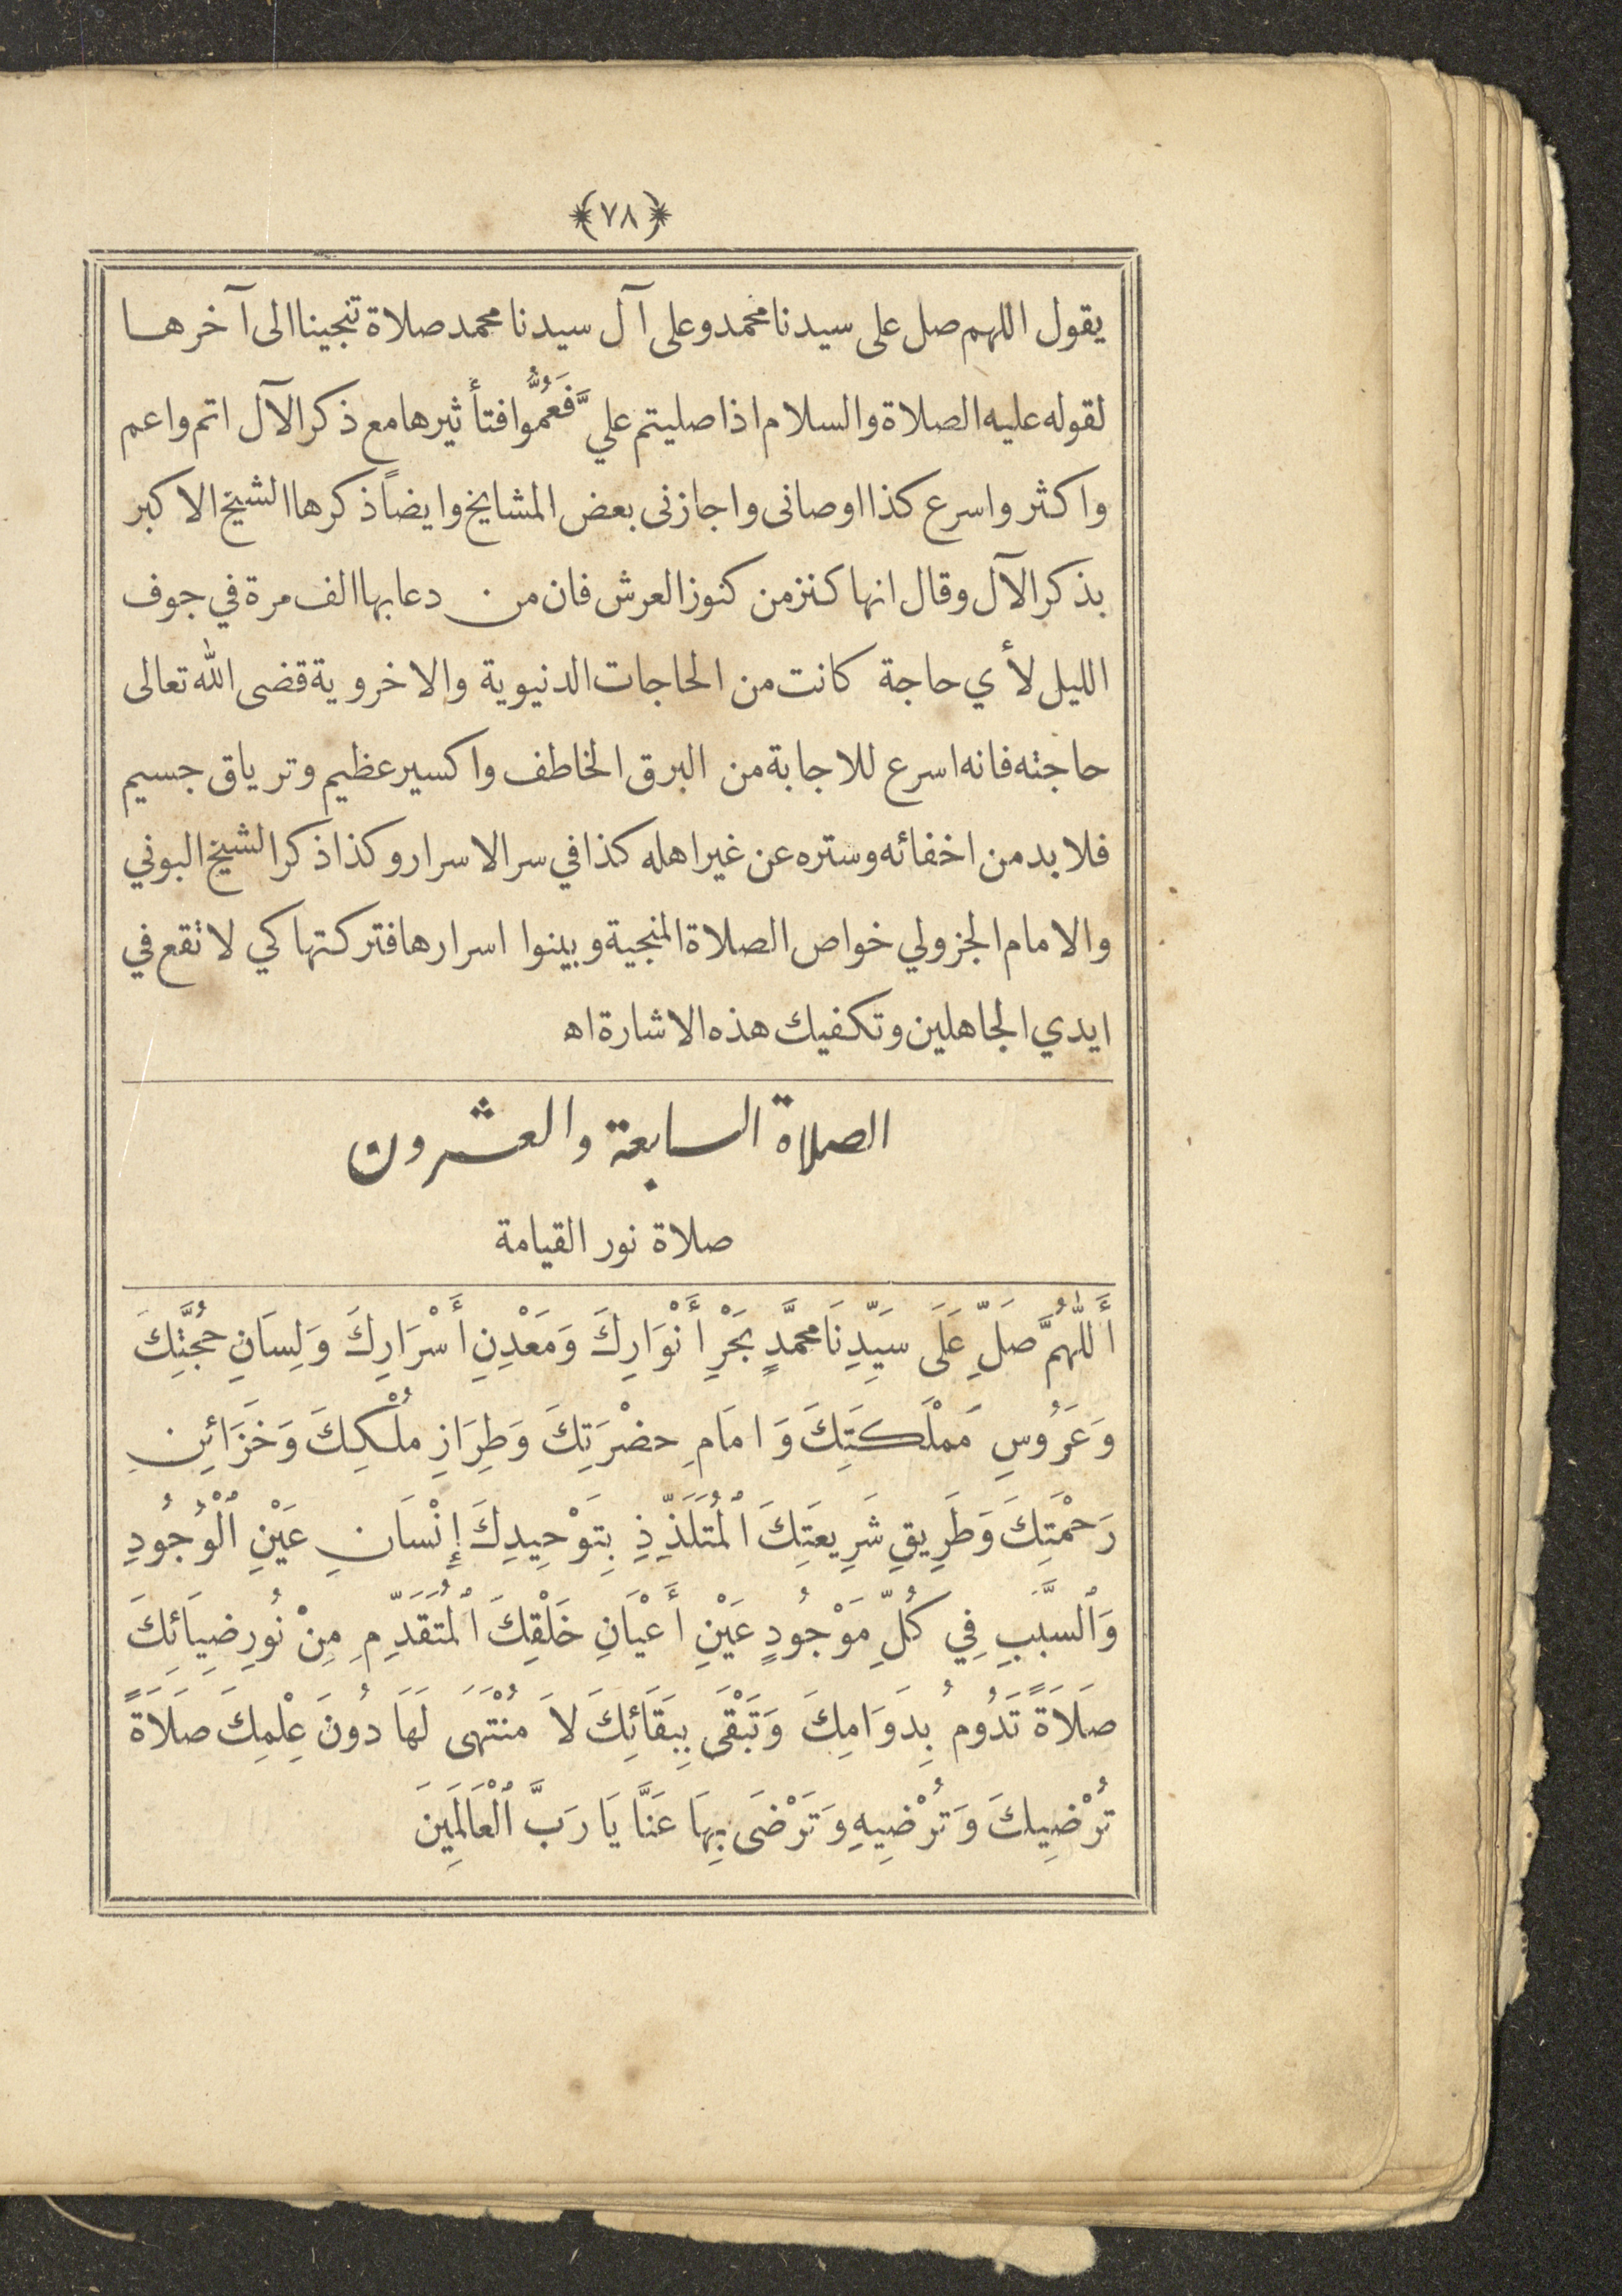 ﴿٧٨﴾
يقول اللهم صل على سيدنا محمد وعلى آل سيدنا محمد صلاة تنجينا الى آخرها
لقوله عليه الصلاة والسلام اذا صليتم عليَّ فَعُمُّوا فتأثيرها مع ذكر الآل اتم واعم
واكثر واسرع كذا اوصانى واجازنى بعض المشايخ وايضاً ذكرها الشيخ الاكبر
بذكر الآل وقال انها كنز من كنوز العرش فان من دعا بها الف مرة في جوف
الليل لأي حاجة كانت من الحاجات الدنيوية والاخروية قضى الله تعالى
حاجته فانه اسرع للاجابة من البرق الخاطف واكسير عظيم وترياق جسيم
فلا بد من اخفائه وستره عن غير اهله كذا في سر الاسرار وكذا ذكر الشيخ البوني
والامام الجزولي خواص الصلاة المنجية وبينوا اسرارها فتركتها كي لا تقع في
ايدي الجاهلين وتكفيك هذه الاشارة اه
الصلاة السابعة والعشرون
صلاة نور القيامة
أَللّٰهُمَّ صَلِّ عَلَى سَيِّدِنَا مُحَمَّدٍ بَحْرِ أَنْوَارِكَ وَمَعْدِنِ أَسْرَارِكَ وَلِسَانِ حُجَّتِكَ
وَعَرُوسِ مَمْلَكَتِكَ وَامَامِ حضْرَتِكَ وَطِرَازِ مُلْكِكَ وَخَزَائِنِ
رَحْمَتِكَ وَطَرِيقِ شَرِيعَتِكَ ٱلْمُتَلَذِّذِ بِتَوْحِيدِكَ إِنْسَانِ عَيْنِ ٱلْوُجُودِ
وَٱلسَّبَبِ فِي كُلِّ مَوْجُودٍ عَيْنِ أَعْيَانِ خَلْقِكَ ٱلْمُتَقَدِّمِ مِنْ نُورِ ضِيَائِكَ
صَلَاةً تَدُومُ بِدَوَامِكَ وَتَبْقَى بِبَقَائِكَ لَا مُنْتَهَى لَهَا دُونَ عِلْمِكَ صَلَاةً
تُرْضِيكَ وَتُرْضِيهِ وَتَرْضَى بِهَا عَنَّا يَا رَبَّ ٱلْعَالَمِينَ